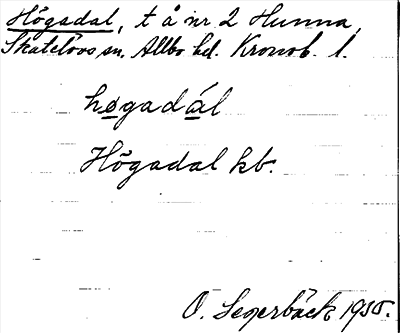 Högadal, t å nr 2 Hunna,
Skatelövs sn. Allbo hd. Kronob. l.
høgadál
Högadal kb.
O. Segerbäck 1935.